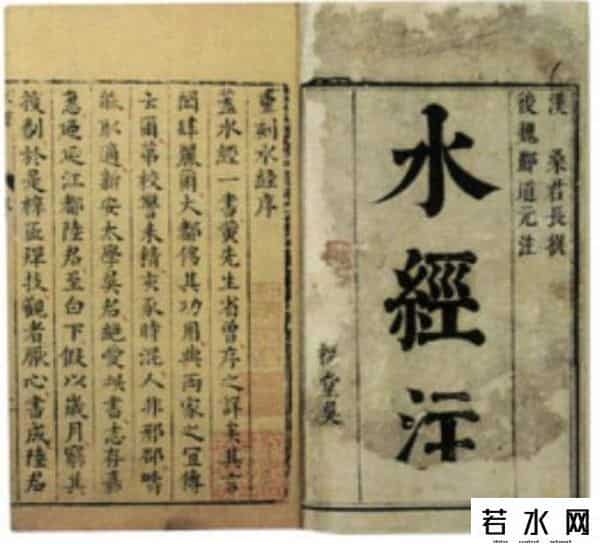 漢 桑君長撰
後魏酈道元注
水經注
重刻水經序
蓋水經一書黃先生省曾序之詳矣其言
閎肆麗爾大都侈其功用與兩家之宜傳
云爾第校讐未精亥豕時混人非邢邵疇
能取適新安太學吳君絶愛此書志存嘉
惠迺延江都陸君至白下假以歲月窮其
後剞於是梓匠殫技觀者厭心書成陸君
若水网